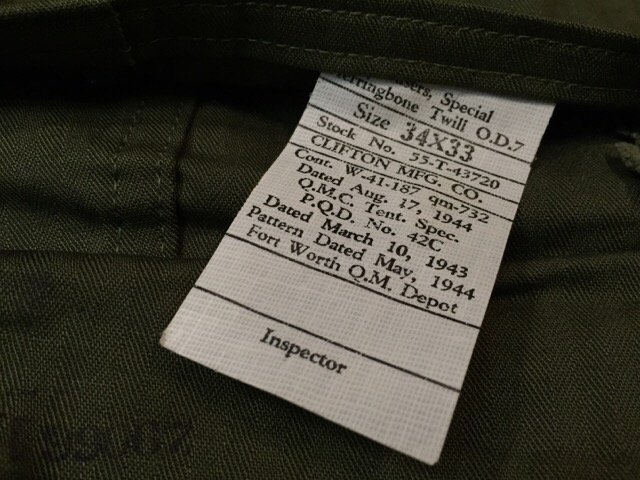 Special
Herringbone Twill O.D.7
Size 34X33
Stock No. 55-T-43720
CLIFTON MFG. CO.
Cont. W-41-187 qm-732
Dated Aug. 17, 1944
Q.M.C. Tent. Spec.
P.Q.D. No. 42C
Dated March 10, 1943
Pattern Dated May, 1944
Fort Worth Q.M. Depot
Inspector